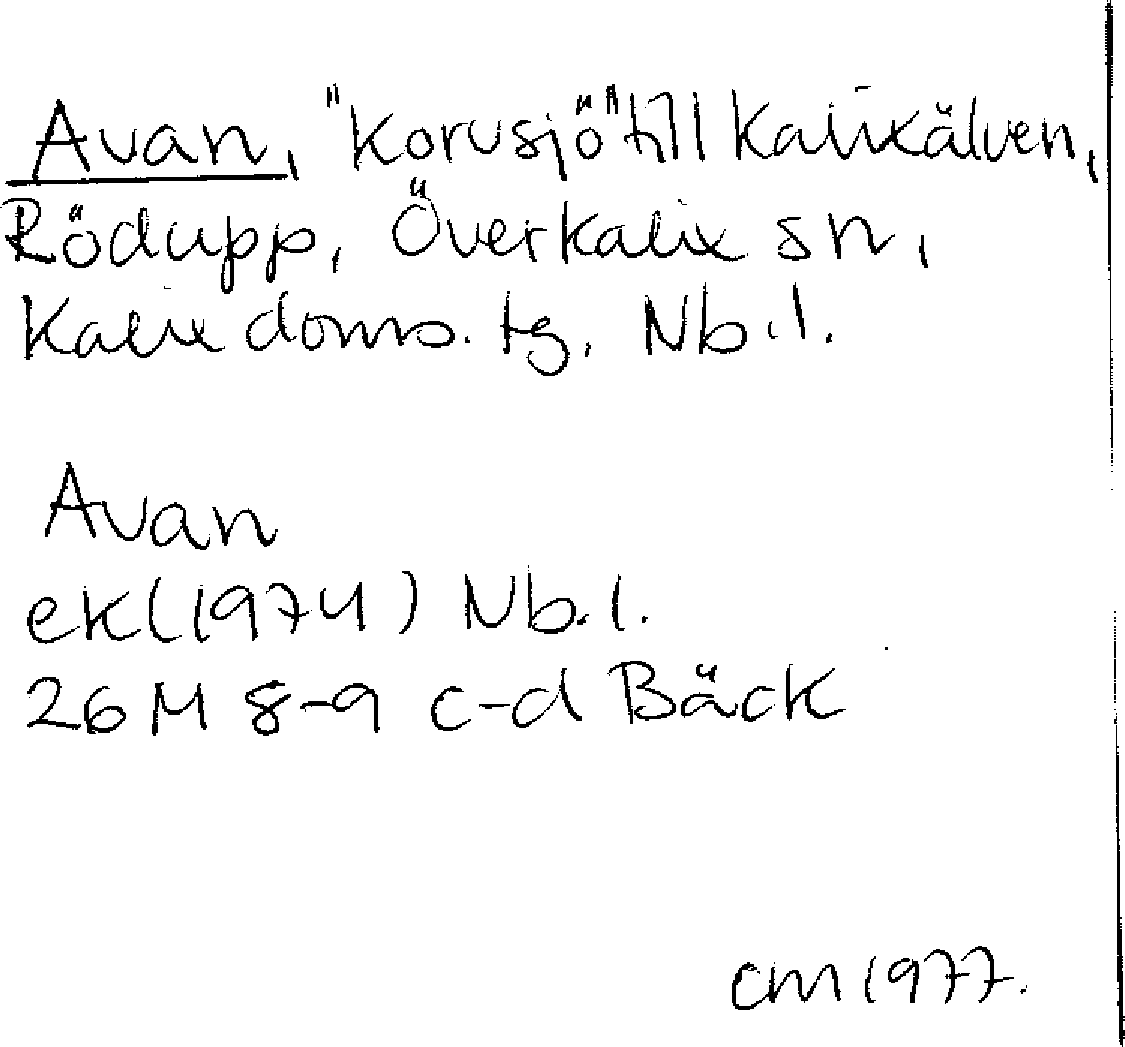 Avan, "korvsjö" till Kalixälven,
Rödupp, Överkalix sn,
Kalix doms. tg. Nb. l.
Avan
ek (1974) Nb. l.
26 M 8-9 c-d Bäck
CM 1977.